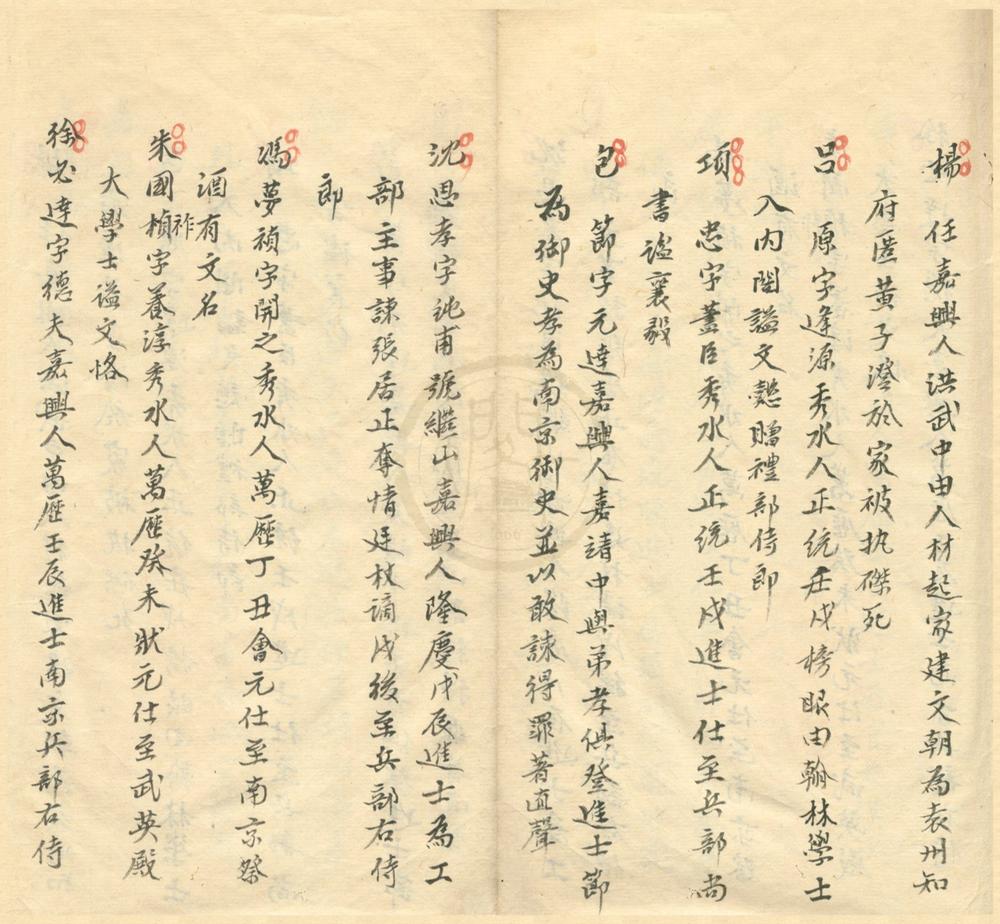 楊　任嘉興人洪武中由人材起家建文朝為袁州知
府匿黄子澄於家被执磔死
吕　原字逢源秀水人正統壬戌榜眼由翰林學士
入内閣謚文懿贈禮部侍郎
項　忠字藎臣秀水人正統壬戌進士仕至兵部尚
書謚襄毅
包　節字元達嘉興人嘉靖中與弟孝俱登進士節
為御史孝為南京御史並以敢諫得罪著直聲
沈思孝字純甫號繼山嘉興人隆慶戊辰進士為工
部主事諫張居正奪情廷杖謫戍後至兵部右侍
郎
馮夢禎字開之秀水人萬歷丁丑會元仕至南京祭
酒有文名
朱國楨祚字養淳秀水人萬歷癸未狀元仕至武英殿
大學士謚文恪
徐必達字德夫嘉興人萬歷壬辰進士南京兵部右侍